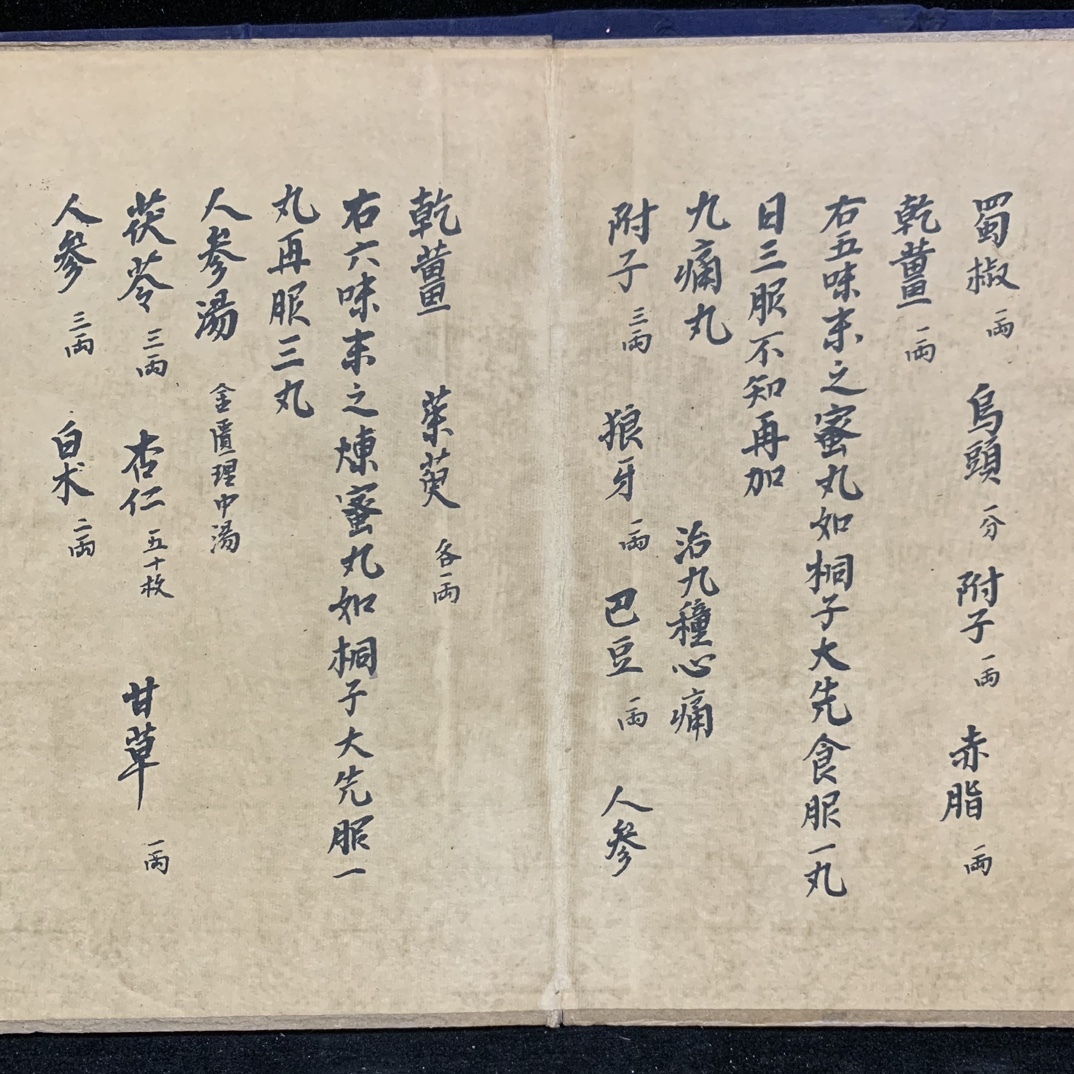 蜀椒 一兩 烏頭 一分 附子 一兩 赤脂 一兩
乾薑 一兩
右五味末之蜜丸如桐子大先食服一丸
日三服不知再加
九痛丸 治九種心痛
附子 三兩 狼牙 一兩 巴豆 一兩 人參
乾薑 茱萸 各一兩
右六味末之煉蜜丸如桐子大先服一
丸再服三丸
人參湯 金匱理中湯
茯苓 三兩 杏仁 五十枚 甘草 一兩
人參 三兩 白朮 二兩